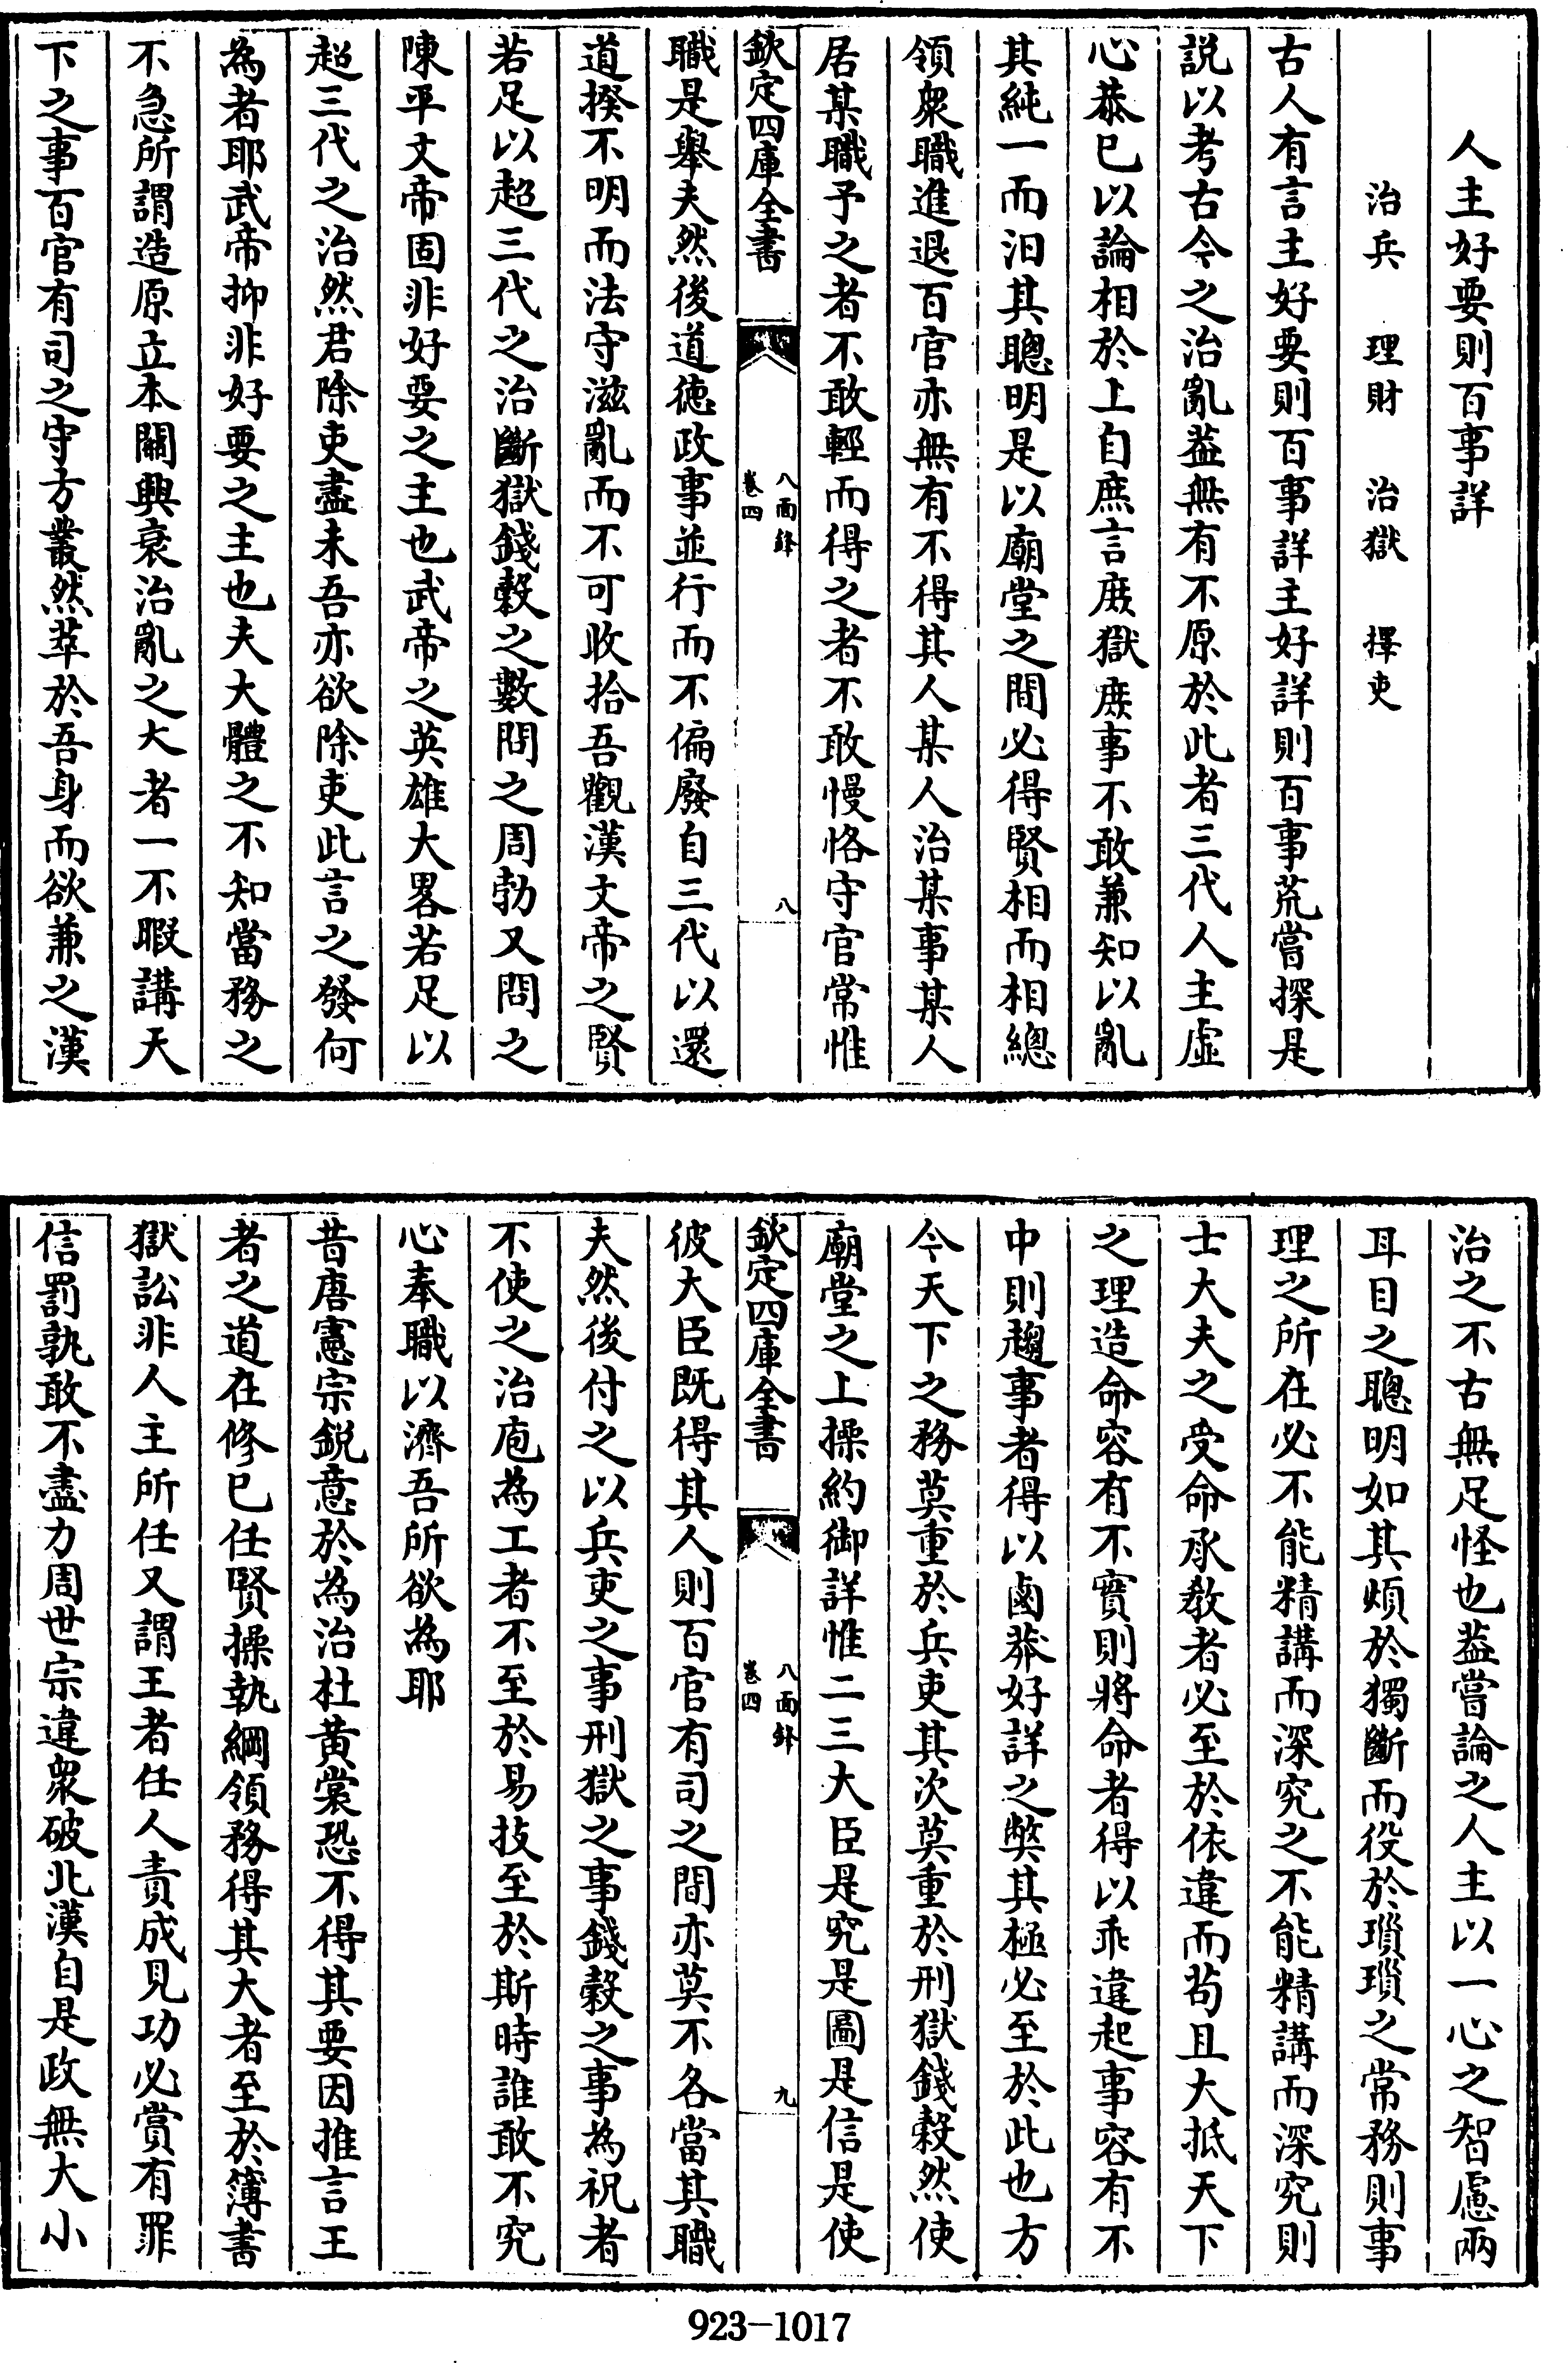 人主好要則百事詳
治兵　理財　治獄　擇吏
古人有言主好要則百事詳主好詳則百事荒嘗探是
説以考古今之治亂葢無有不原於此者三代人主虛
心恭已以論相於上自庶言庶獄庶事不敢兼知以亂
其純一而汨其聰明是以廟堂之間必得賢相而相總
領衆職進退百官亦無有不得其人某人治某事某人
居某職予之者不敢輕而得之者不敢慢恪守官常惟
欽定四庫全書
八面鋒
卷四
八
職是舉夫然後道德政事並行而不偏廢自三代以還
道揆不明而法守滋亂而不可收拾吾觀漢文帝之賢
若足以超三代之治斷獄錢穀之數問之周勃又問之
陳平文帝固非好要之主也武帝之英雄大畧若足以
超三代之治然君除吏盡未吾亦欲除吏此言之發何
為者耶武帝抑非好要之主也夫大體之不知當務之
不急所謂造原立本關興衰治亂之大者一不暇講天
下之事百官有司之守方叢然萃於吾身而欲兼之漢
治之不古無足怪也葢嘗論之人主以一心之智慮兩
耳目之聰明如其煩於獨斷而役於瑣瑣之常務則事
理之所在必不能精講而深究之不能精講而深究則
士大夫之受命承教者必至於依違而苟且大抵天下
之理造命容有不實則將命者得以乖違起事容有不
中則趨事者得以鹵莽好詳之弊其極必至於此也方
今天下之務莫重於兵吏其次莫重於刑獄錢穀然使
廟堂之上操約御詳惟二三大臣是究是圖是信是使
欽定四庫全書
八面鋒
卷四
九
彼大臣既得其人則百官有司之間亦莫不各當其職
夫然後付之以兵吏之事刑獄之事錢穀之事為祝者
不使之治庖為工者不至於易技至於斯時誰敢不究
心奉職以濟吾所欲為耶
昔唐憲宗鋭意於為治杜黄裳恐不得其要因推言王
者之道在修已任賢操執綱領務得其大者至於簿書
獄訟非人主所任又謂王者任人責成見功必賞有罪
信罰孰敢不盡力周世宗違衆破北漢自是政無大小
923-1017